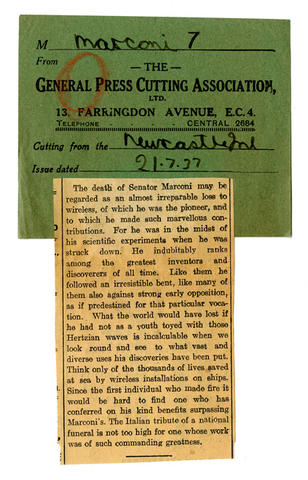 M Marconi 7
From — THE —
GENERAL PRESS CUTTING ASSOCIATION,
LTD.
13, FARRINGDON AVENUE, E.C. 4.
TELEPHONE - - CENTRAL 2684
Cutting from the Newcastle Jnl
Issue dated 21.7.37
The death of Senator Marconi may be
regarded as an almost irreparable loss to
wireless, of which he was the pioneer, and
to which he made such marvellous con-
tributions. For he was in the midst of
his scientific experiments when he was
struck down. He indubitably ranks
among the greatest inventors and
discoverers of all time. Like them he
followed an irresistible bent, like many of
them also against strong early opposition,
as if predestined for that particular voca-
tion. What the world would have lost if
he had not as a youth toyed with those
Hertzian waves is incalculable when we
look round and see to what vast and
diverse uses his discoveries have been put.
Think only of the thousands of lives saved
at sea by wireless installations on ships.
Since the first individual who made fire it
would be hard to find one who has
conferred on his kind benefits surpassing
Marconi's. The Italian tribute of a national
funeral is not too high for one whose work
was of such commanding greatness.